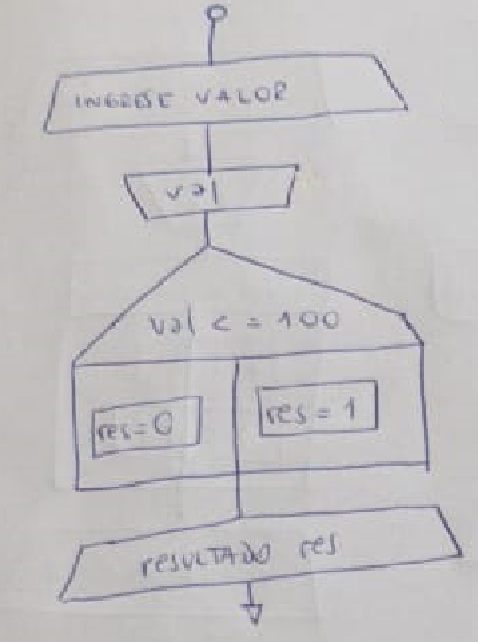 INGRESE VALOR
val
val <= 100
res=0
res = 1
RESULTADO res